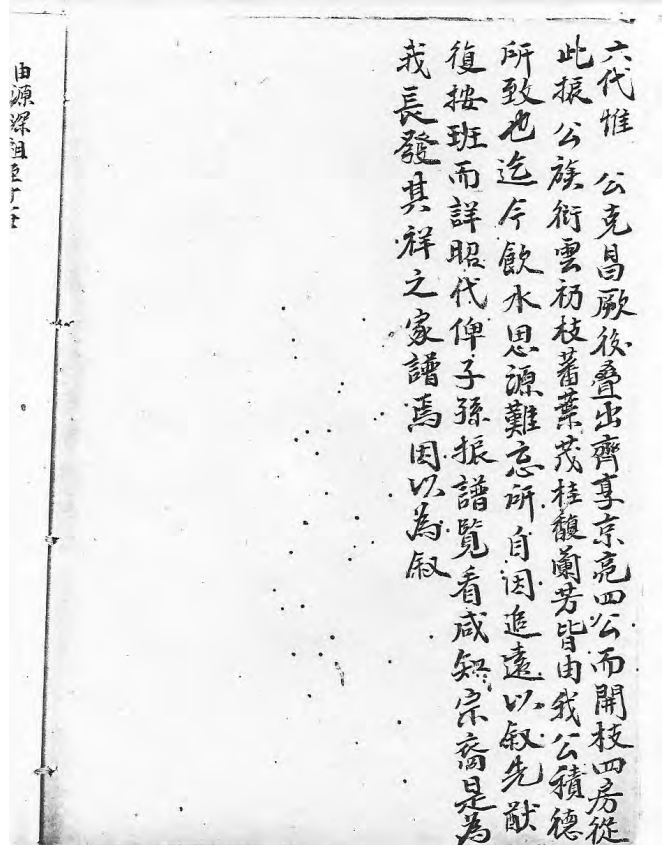 六代惟 公克昌厥後疊出齊享京亮四公而開枝四房從
此振 公族衍雲礽枝蕃葉茂桂馥蘭芳皆由我公積德
所致也迄今飲水思源難忘所自因追遠以叙先猷
復按班而詳昭代俾子孫振譜覽看咸知宗裔是為
我長發其祥之家譜焉因以為叙
由源深祖